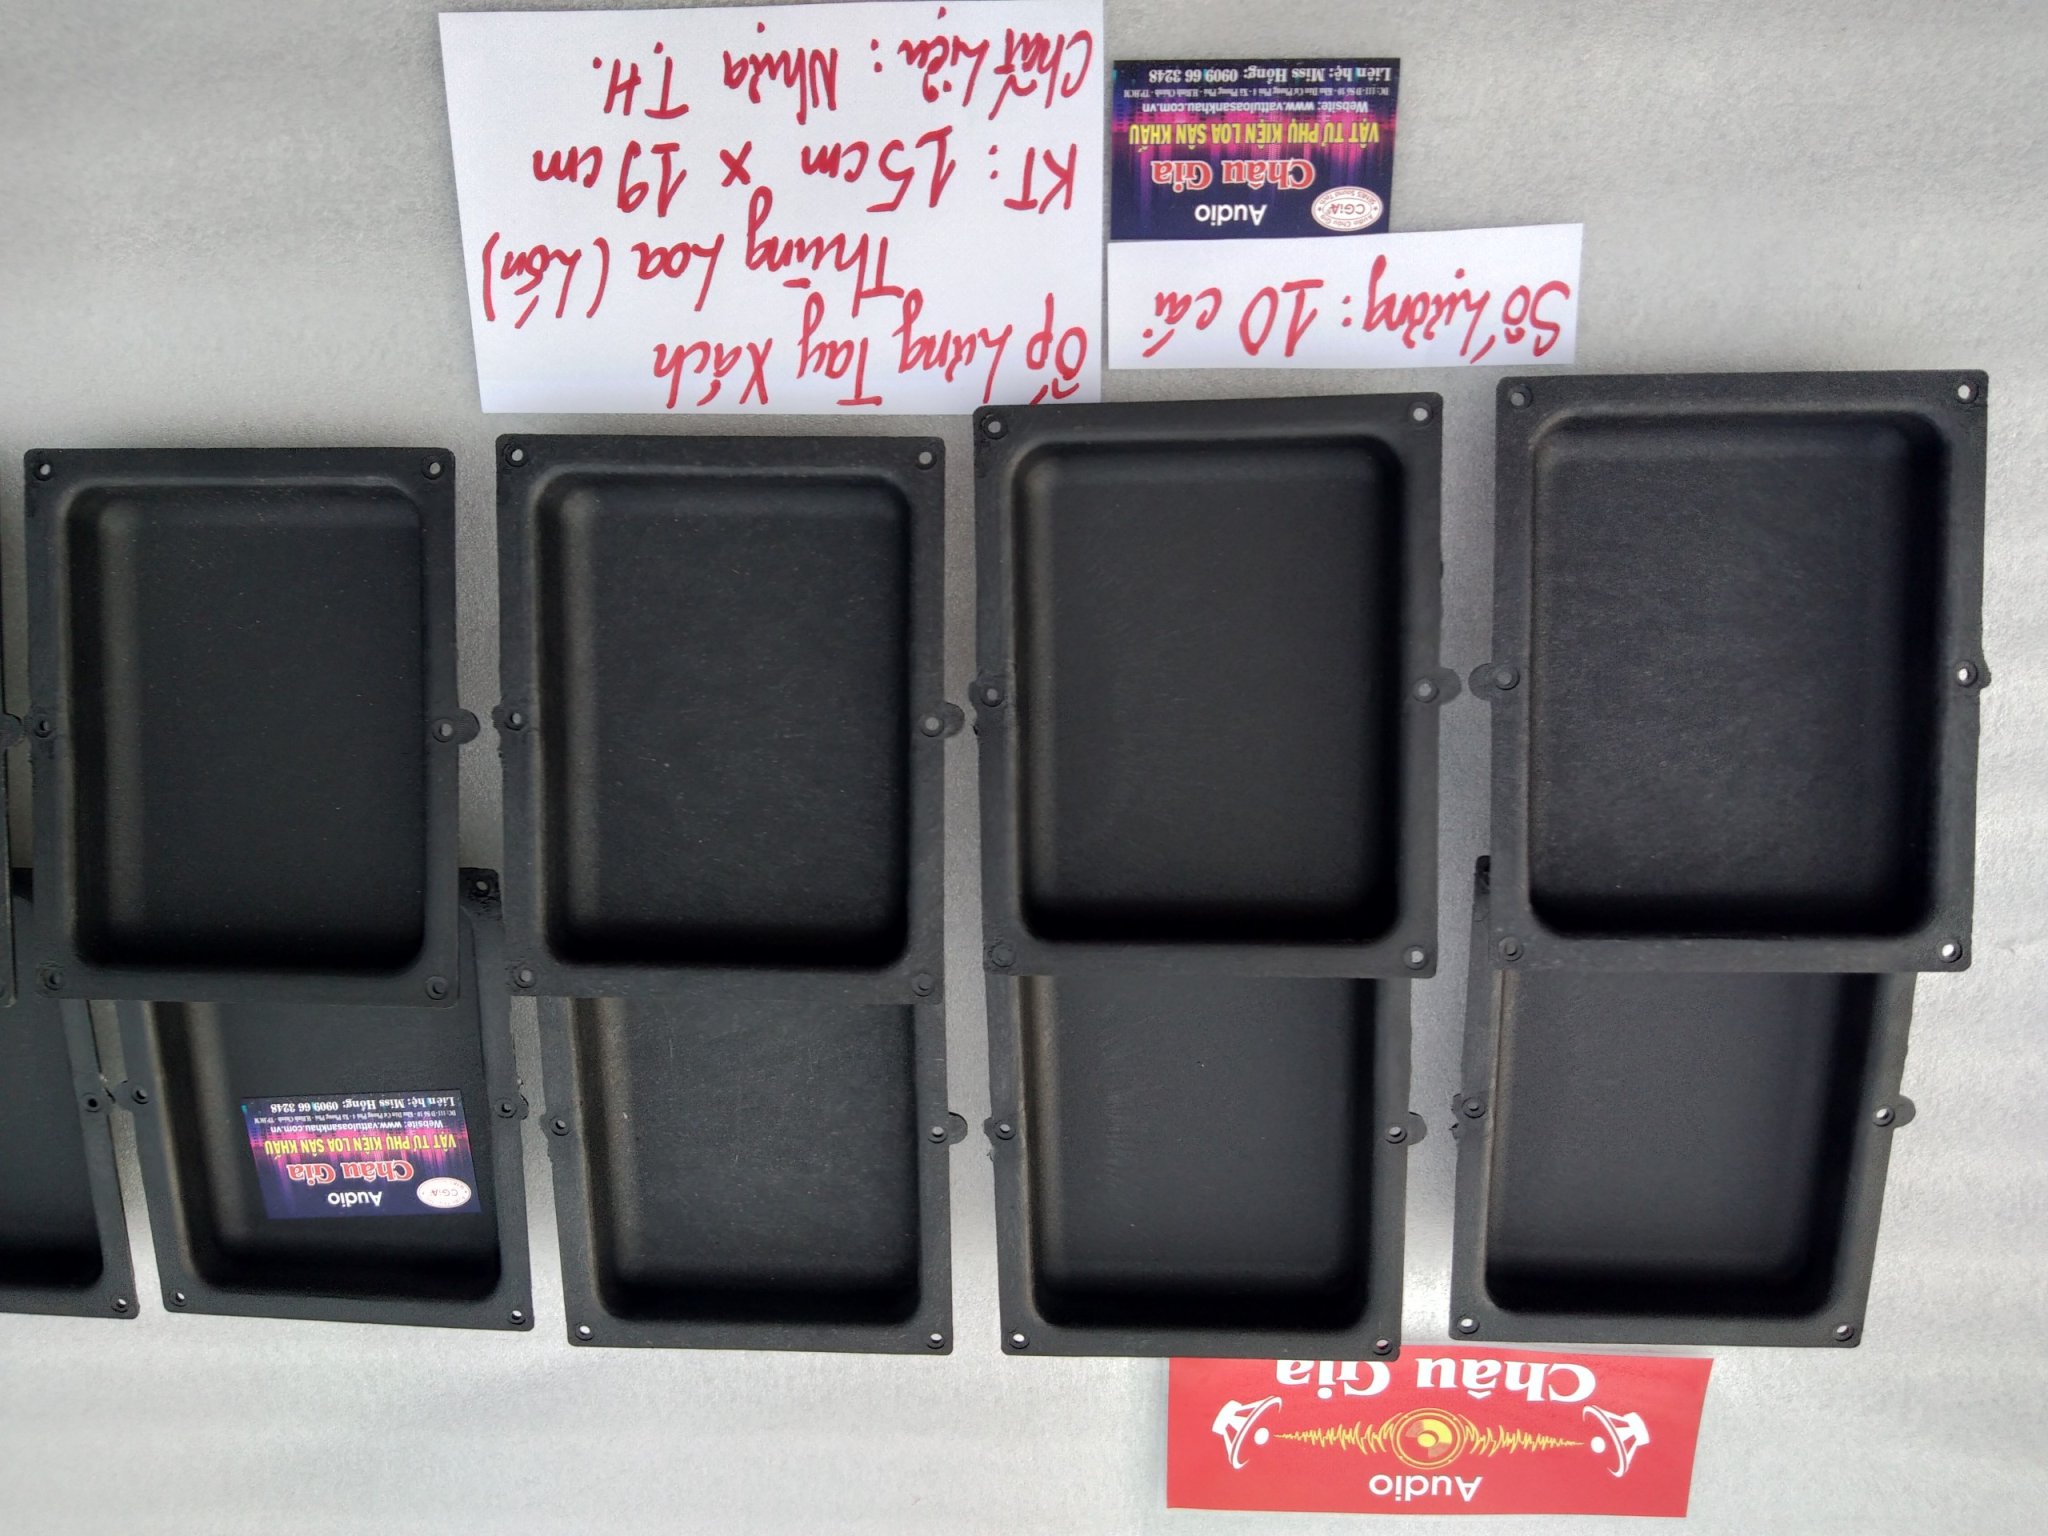 Ốp Lưng Tay Xách
Thùng Loa (Lớn)
KT: 15cm x 19cm
Chất Liệu: Nhựa T.H.
Số Lượng: 10 cái
Audio
Châu Gia
VẬT TƯ PHỤ KIỆN LOA SÂN KHẤU
Website: www.vattuloasankhau.com.vn
Liên hệ: Miss Hồng: 0909 66 3248
CGiA
Audio
Châu Gia
VẬT TƯ PHỤ KIỆN LOA SÂN KHẤU
Website: www.vattuloasankhau.com.vn
Liên hệ: Miss Hồng: 0909 66 3248
CGiA
Audio
Châu Gia